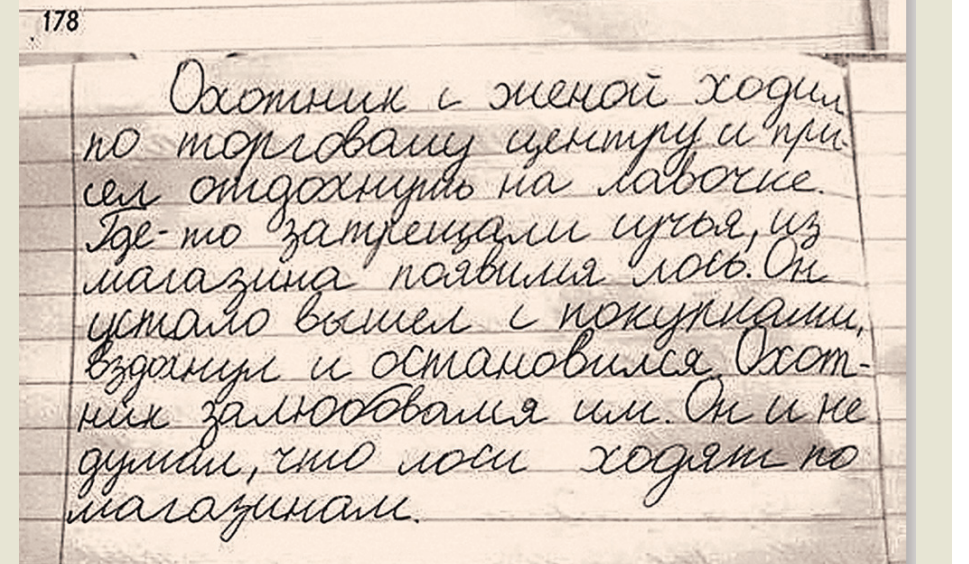 178
Охотник с женой ходил
по торговому центру и при-
сел отдохнуть на лавочке.
Где-то затрещали сучья, из
магазина появился лось. Он
устало вышел с покупками,
вздохнул и остановился. Охот-
ник залюбовался им. Он и не
думал, что лоси ходят по
магазинам.